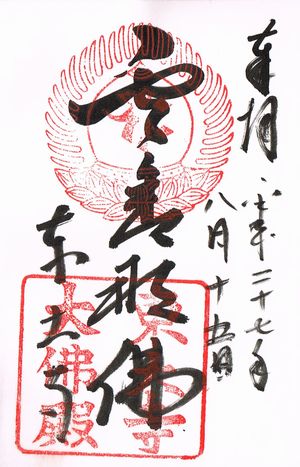 奉拝
平成二十七年
八月十五日
毘盧舎那佛
東大寺
東大寺
大佛殿